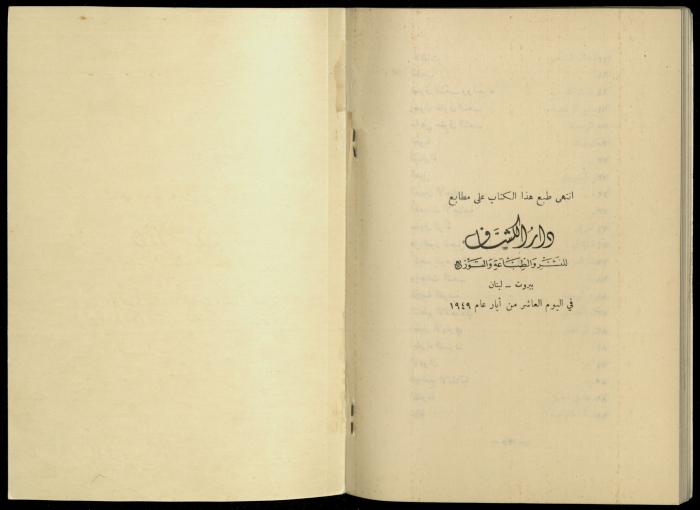 انتهى طبع هذا الكتاب على مطابع
دار الكشاف
للنشر والطباعة والتوزيع
بيروت - لبنان
في اليوم العاشر من أيار عام ١٩٤٩